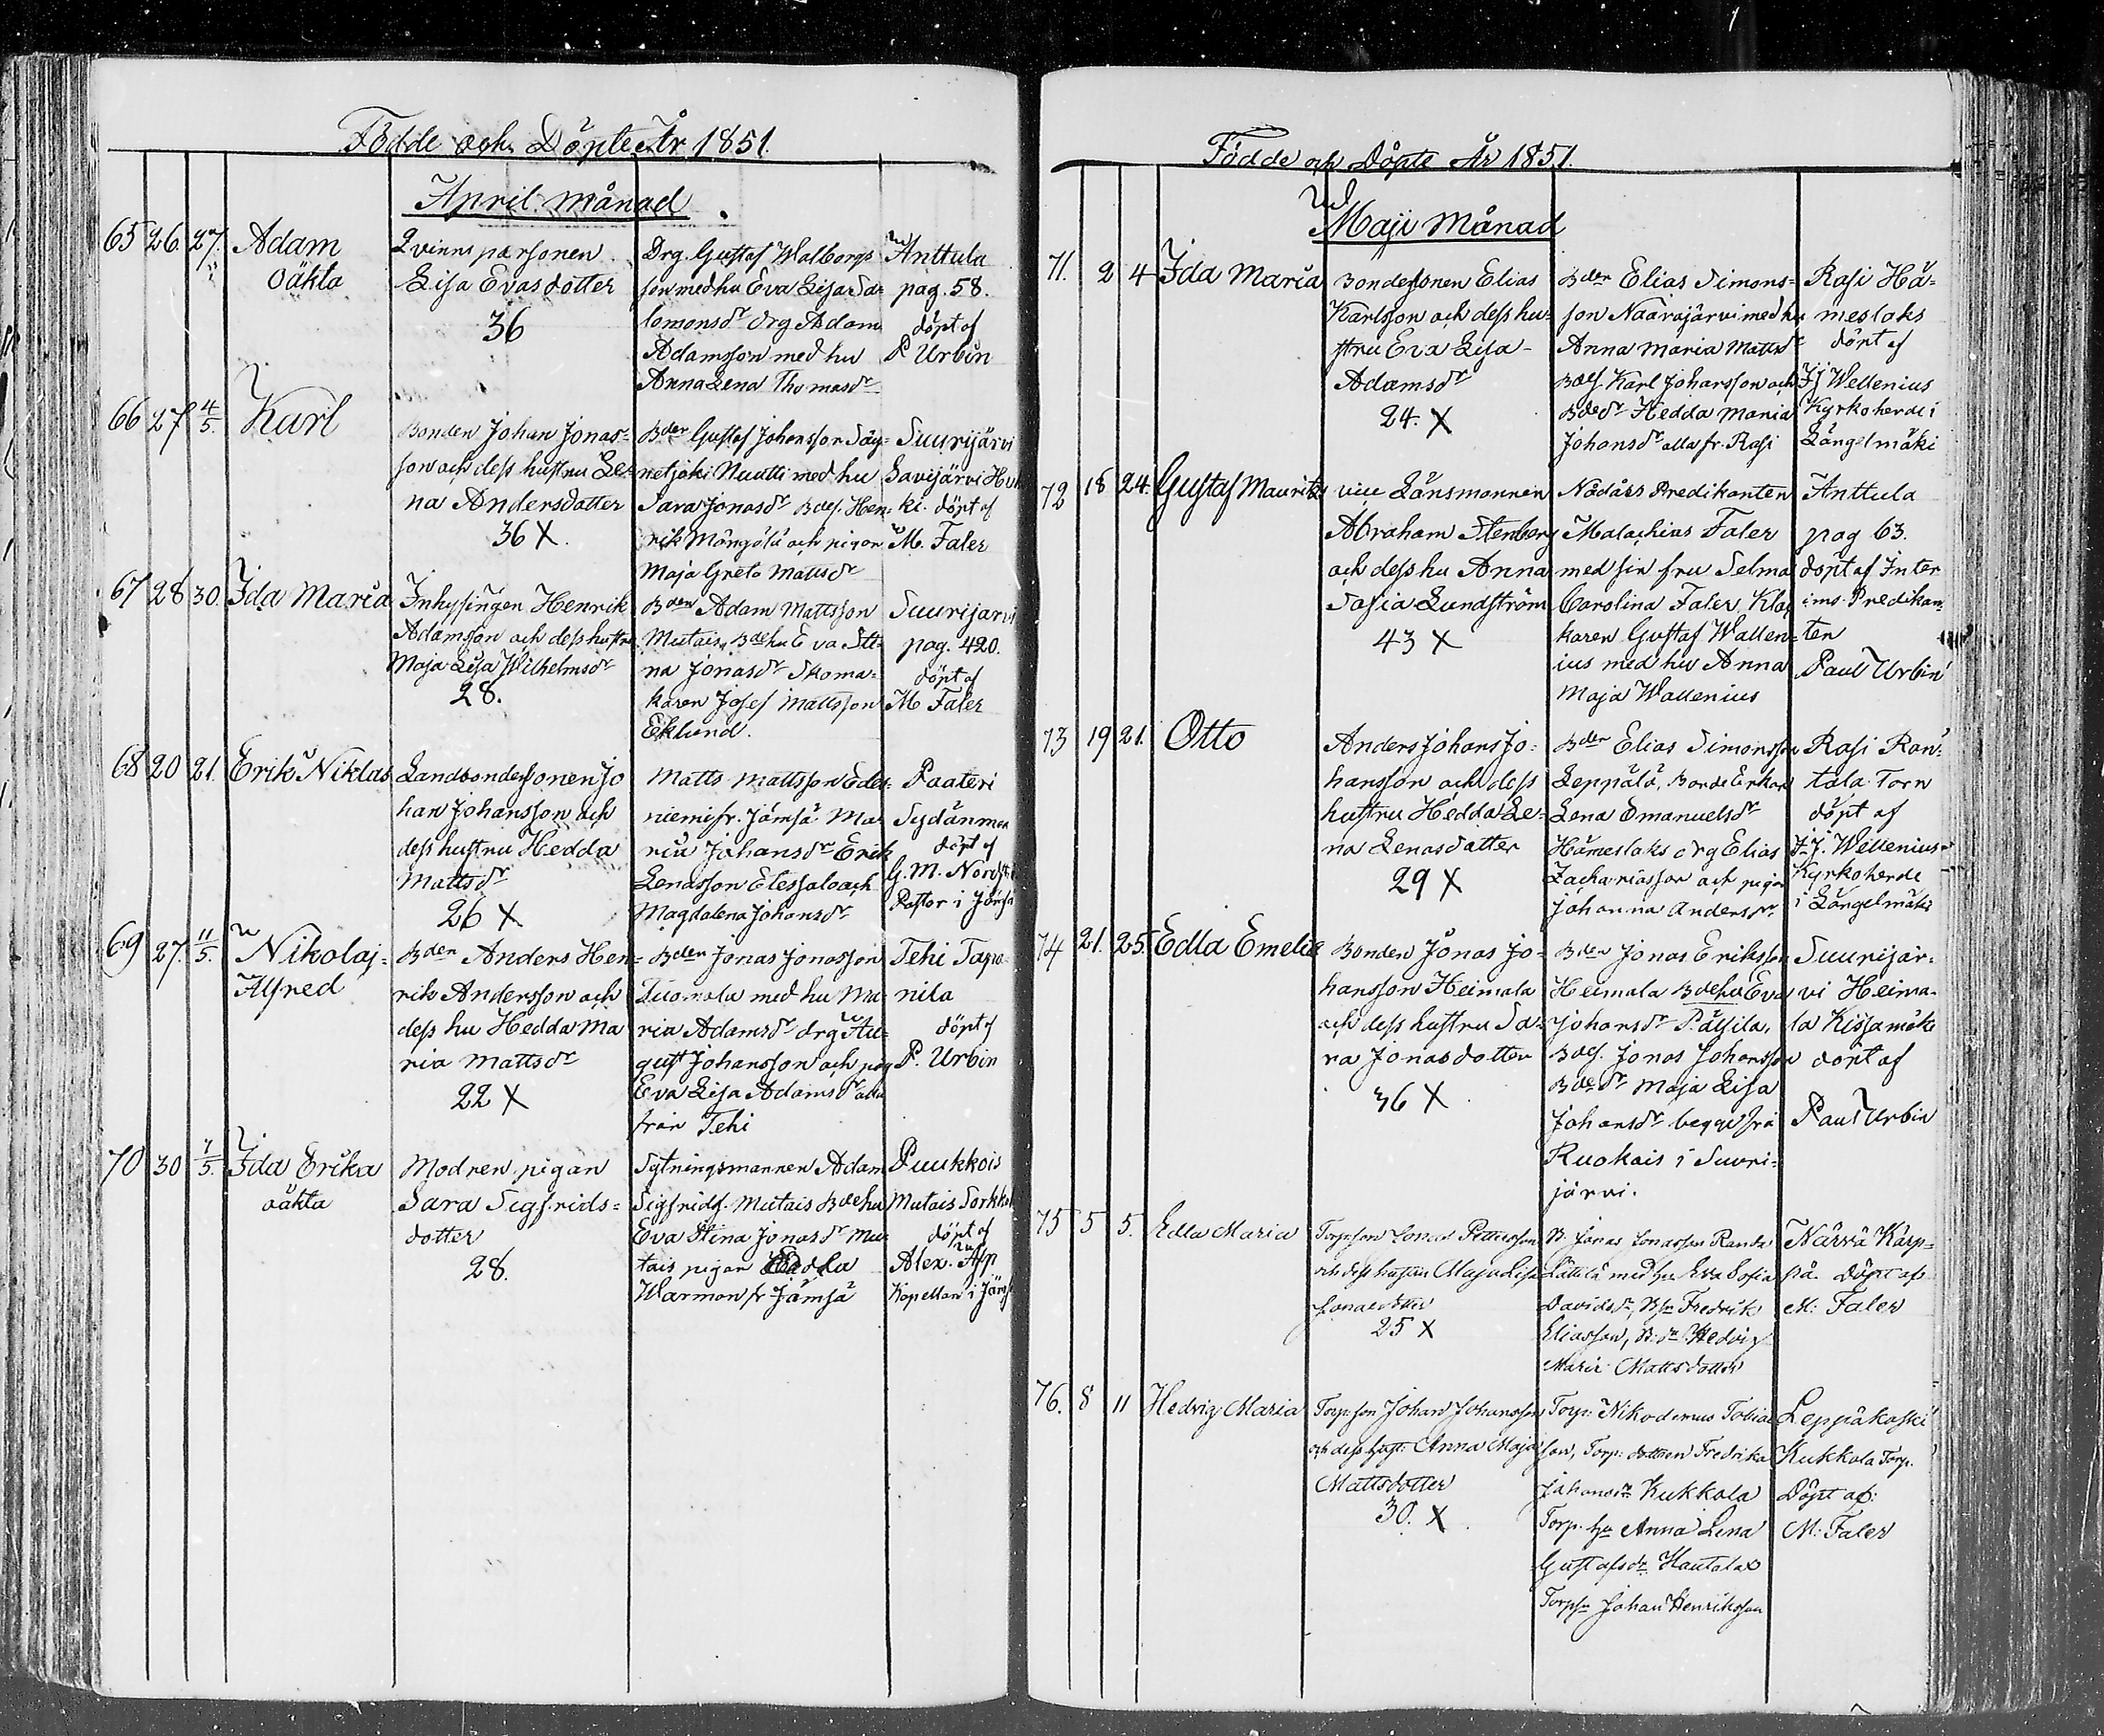 Födde och Döpte År 1851.
April månad
65 26. 27. Adam
oäkta
Qvinns personen
Lisa Evasdotter
36
Drg. Gustaf Walborgs
son med hu Eva Lisa Sa=
lomonsdr drg Adam
Adamsson med hu
Anna Lena Thomasdr
Anttula
pag. 58.
döpt af
P Urbin
66 27 4/5. Karl
Bonden Johan Jonas=
son och dess hustru Le=
na Andersdotter
36 X.
Bden Gustaf Johansson Säy=
netjoki Nuutti med hu
Sara Jonasdr Bdes. Hen=
rik Mångölä och pigan
Maja Greta Mattsdr
Suurijärvi
Savijärvi
ki. döpt af
M. Faler
67 28 30. Ida Maria
Inhysingen Henrik
Adamsson och dess hustru
Maja Lisa Wilhelmsdr
28.
Bden Adam Mattsson
Mutais, Bdehu Eva Sti=
na Jonasdr Skoma=
karen Josef Mattsson
Eklund.
Suurijärvi
pag. 420.
döpt af
M Faler
68 20 21. Erik Niklas
Landbondesonen Jo
han Johansson och
dess hustru Hedda
Mattsdr
26 X
Matts Mattsson Eder=
niemi fr. Jämsä Ma
ria Johansdr Erik
Lenasson Elessalo och
Magdalena Johansdr
Paateri
Sydänmaa
döpt af
G. M. Nordst
Pastor i Jämsä
69 27. 11/5. Nikolaj=
Alfred
Bden Anders Hen=
rik Andersson och
dess hu Hedda Ma
ria Mattsdr
22 X
Bden Jonas Jonasson
Tuomala med hu Ma=
ria Adamsdr drg Au=
gust Johansson och pig
Eva Lisa Adamsdr alla
från Tehi
Tehi Tapa=
nila
döpt af
P. Urbin
70 30 1/5. Ida Erika
oäkta
Modren pigan
Sara Sigfrids=
dotter
28.
Sytningsmannen Adam
Sigfridss. Mutais Bdehu
Eva Stina Jonasdr Mu=
tais pigan Edla
Warman fr Jämsä
Puukkois
Mutais
döpt af
Alex. Asp
Kapellan i Jämsä
Födde och Döpte År 1851.
Maji Månad
71. 2 4 Ida Maria
Bondesonen Elias
Karlsson och dess hu=
stru Eva Lisa
Adamsdr
24. X
Bden Elias Simons=
son Naarajärvi med hu
Anna Maria Mattsdr
Bdes. Karl Johansson och
Bdedr Hedda Maria
Johansdr alla fr. Rasi
Rasi Hä=
meslaks
döpt af
J J Wellenius
Kyrkoherde i
Längelmäki
72 18 24. Gustaf Mauritz
vice Länsmannen
Abraham Stenberg
och dess hu Anna
Sofia Lundström
43 X
Nödårs Predikanten
Malachias Faler
med sin fru Selma
Carolina Faler, Kloc
karen Gustaf Wallen=
ius med hu Anna
Maja Wallenius
Anttula
pag 63.
döpt af Inter
ims Predikan=
ten
Paul Urbin
73 19 21. Otto
Anders Johans Jo=
hansson och dess
hustru Hedda Le=
na Lenasdotter
29 X
Bden Elias Simonsson
Leppälä, Bonde Enkan
Lena Emanuelsdr
Hämeslaks drg Elias
Zachariasson och pigan
Johanna Andersdr
Rasi Ran=
tala Torp
döpt af
J. J. Wellenius
Kyrkoherde
i Längelmäki
74 21. 25. Edla Emelie
Bonden Jonas Jo=
hansson Heimala
och dess hustru Sa=
ra Jonasdotter
36 X
Bden Jonas Eriksson
Heimala Bdehu Eva
Johansdr Pälsilä,
Bdes. Jonas Johansson
Bdedr Maja Lisa
Johansdr begge frå
Ruokais i Suuri=
järvi.
Suurijär=
vi Heima=
la Kissamäki
döpt af
Paul Urbin
75 5 5. Edla Maria
Torpson Jonas Pettersson
och dess hustru Maja Lisa
Jonasdotter
25 X
B. Jonas Jonasson Randa
Lättilä med hu Eva Sofia
Davidsdr, Bsn Fredrik
Eliasson, B: dr Hedvig
Maria Mattsdotter
Närvä Kärp=
pä. Döpt af
M: Faler
76. 8 11 Hedvig Maria
Torpson Johan Johansson
och dess hust: Anna Maja
Mattsdotter
30. X
Torp: Nikodemus Tobias
son, Torp: dottren Fredrika
Johansdr Kukkola
Torp. hu Anna Lena
Gustafsdr Hautala
Torpsn Johan Henriksson
Leppäkoski
Kukkola Torp.
Döpt af:
M: Faler